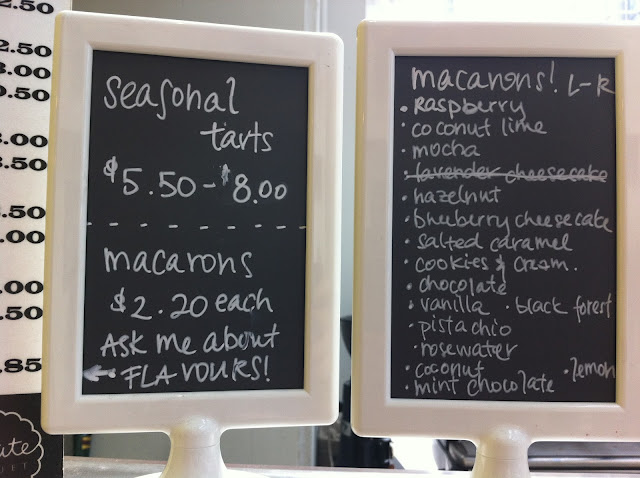 2.50
2.50
3.00
9.50
3.00
3.50
3.50
.00
.00
.50
.85
seasonal
tarts
$5.50 - $8.00
macarons
$2.20 each
ASK me about
← FLAVOURS!
macarons! L-R
• Raspberry
• coconut lime
• mocha
• lavender cheesecake
• hazelnut
• blueberry cheesecake
• salted caramel
• cookies & cream.
• chocolate
• vanilla • black forest
• pistachio
• rosewater
• coconut • lemon
• mint chocolate